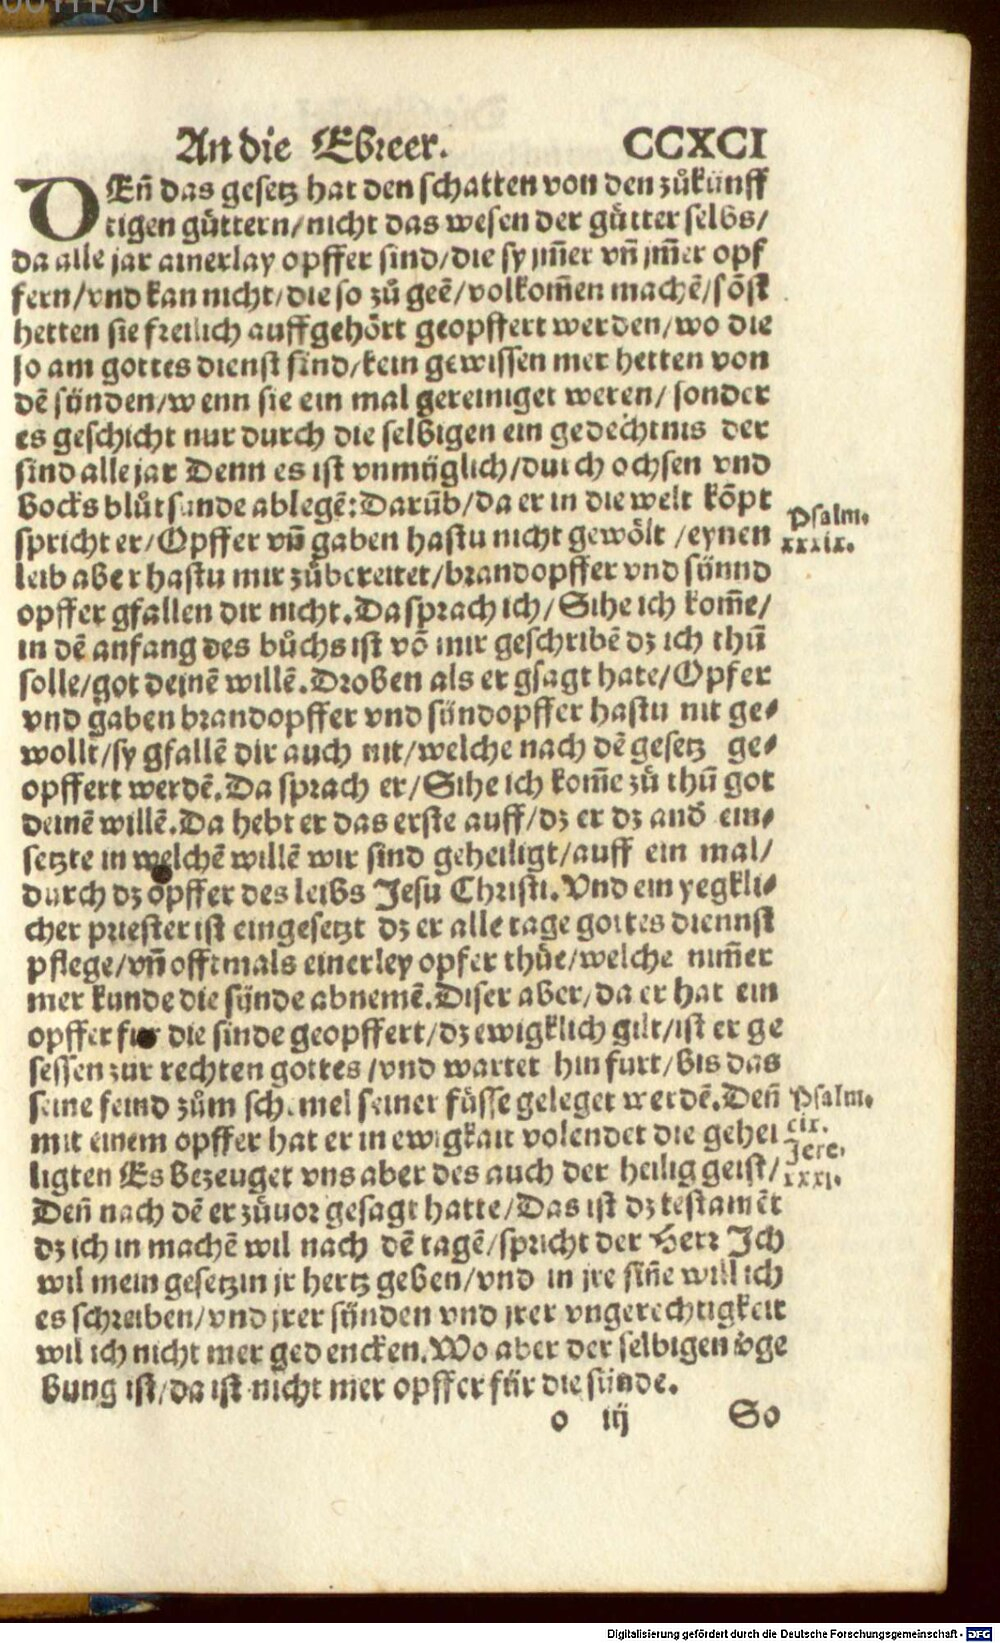 An die Ebreer. CCXCI
DEñ das gesetz hat den schatten von den zůkünff
tigen güttern/nicht das wesen der gütter selbs/
da alle jar ainerlay opffer sind/die sy jm̃er vñ jm̃er opf
fern/vnd kan nicht/die so zů geẽ/volkom̃en machẽ/sõst
hetten sie freilich auffgehört geopffert werden/wo die
so am gottes dienst sind/kein gewissen mer hetten von
dẽ sünden/wenn sie ein mal gereiniget weren/sonder
es geschicht nur durch die selbigen ein gedechtnis der
sind alle jar Denn es ist vnmüglich/durch ochsen vnd
bocks blůt sunde ablegẽ: Darũb/da er in die welt kõpt
spricht er/Opffer vñ gaben hastu nicht gewölt/eynen
leib aber hastu mir zůbereitet/brandopffer vnd sünnd
opffer gfallen dir nicht. Da sprach ich/Sihe ich kom̃e/
in dẽ anfang des bůchs ist võ mir geschribẽ dz ich thů
solle/got deinẽ willẽ. Droben als er gsagt hate/Opfer
vnd gaben brandopffer vnd sündopffer hastu nit ge⸗
wollt/sy gfallẽ dir auch nit/welche nach dẽ gesetz ge⸗
opffert werdẽ. Da sprach er/Sihe ich kom̃e zů thů got
deinẽ willẽ. Da hebt er das erste auff/dz er dz and̃ ein⸗
setzte in welchẽ willẽ wir sind geheiligt/auff ein mal/
durch dz opffer des leibs Jesu Christi. Vnd ein yegkli⸗
cher priester ist eingesetzt dz er alle tage gottes diennst
pflege/vñ offtmals einerley opfer thüe/welche nim̃er
mer kunde die sünde abnemẽ. Diser aber/da er hat ein
opffer fur die sinde geopffert/dz ewigklich gilt/ist er ge
sessen zur rechten gottes/vnd wartet hinfurt/bis das
seine feind zům schemel seiner füsse geleget werdẽ. Deñ
mit einem opffer hat er in ewigkait volendet die gehei
ligten Es bezeuget vns aber des auch der heilig geist/
Deñ nach dẽ er zůuor gesagt hatte/Das ist dz testamẽt
dz ich in machẽ wil nach dẽ tagẽ/spricht der Herr Jch
wil mein gesetz in jr hertz geben/vnd in jre siñe will ich
es schreiben/vnd jrer sünden vnd jrer vngerechtigkeit
wil ich nicht mer gedencken. Wo aber der selbigen v̈ge
bung ist/da ist nicht mer opffer für die sünde.
o iij So
Psalm.
xxxix.
Psalm.
cix.
Jere.
xxxi.
Digitalisierung gefördert durch die Deutsche Forschungsgemeinschaft - DFG